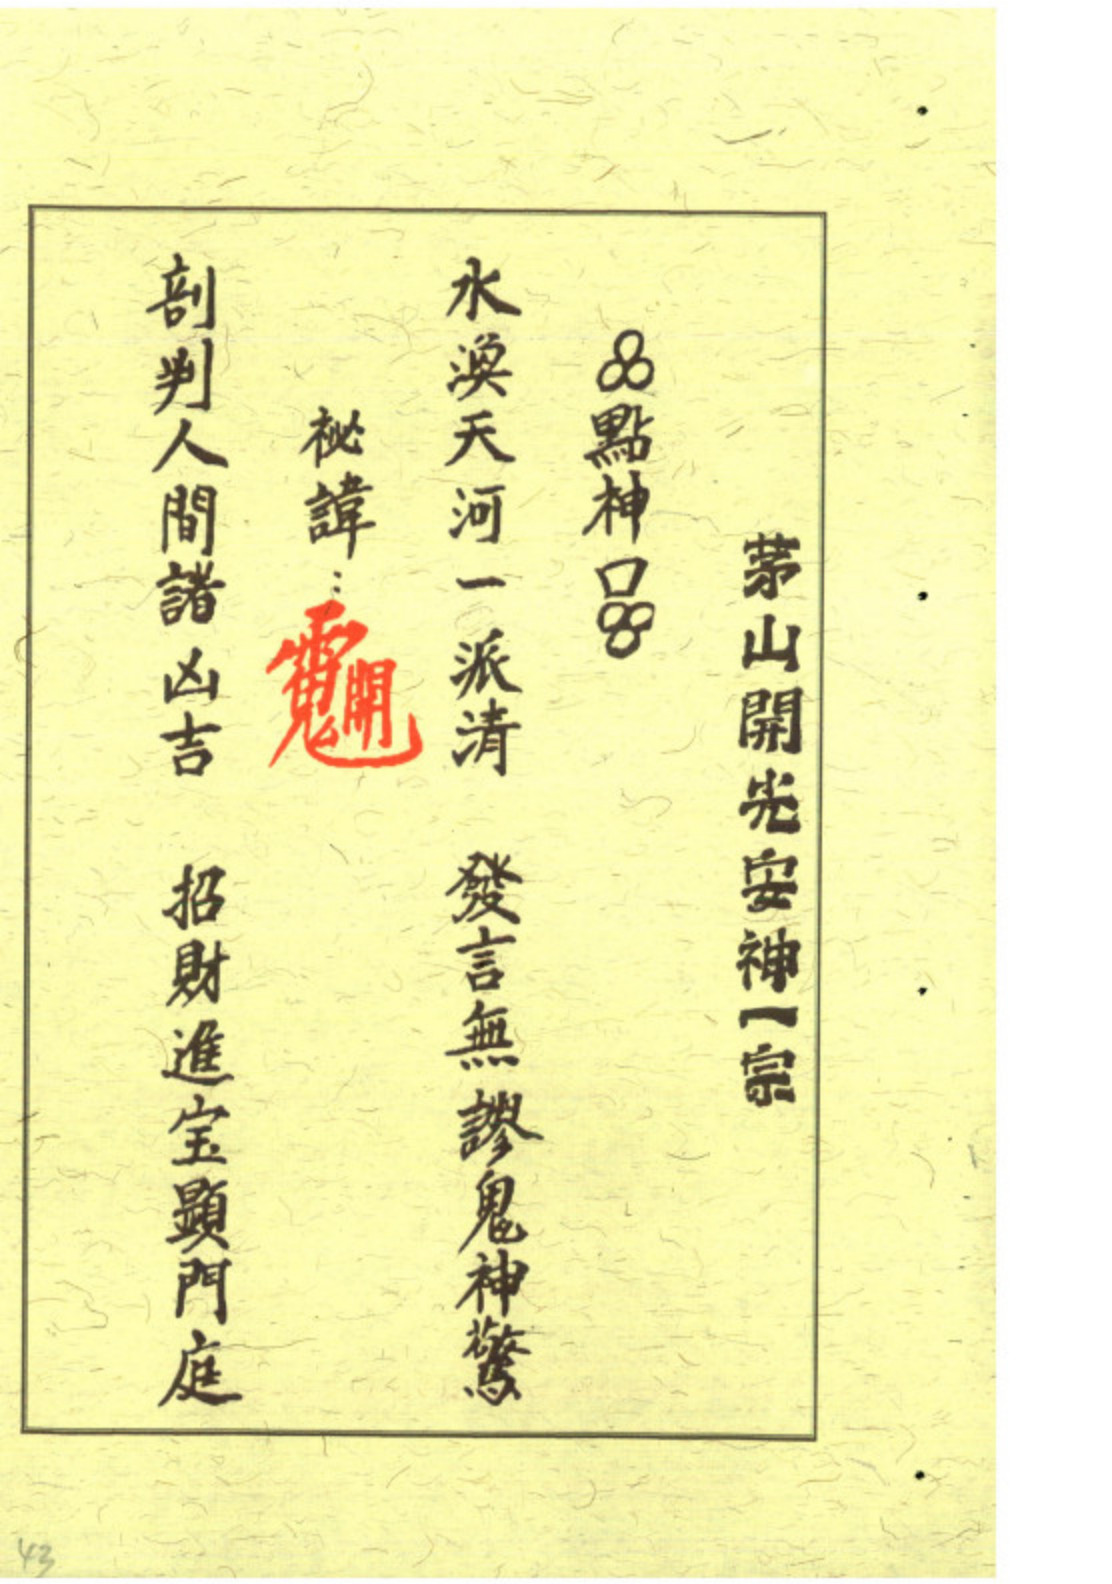 茅山開光安神一宗
點神口
水渙天河一派清 發言無謬鬼神驚
秘諱：
剖判人間諸凶吉 招財進宝顕門庭
43